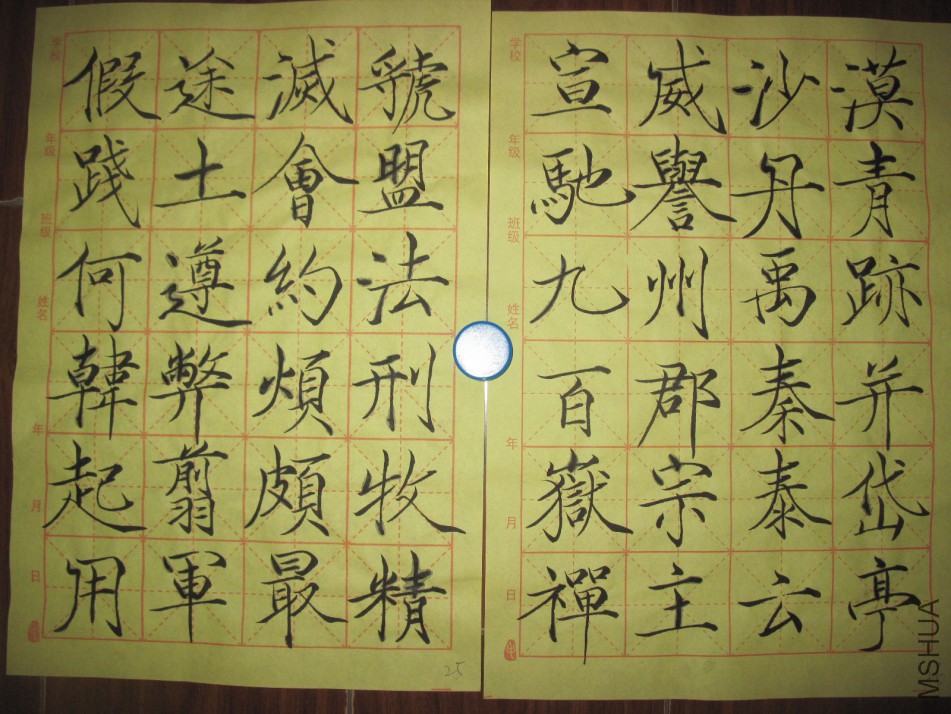 假途滅虢
踐土會盟
何遵約法
韓弊煩刑
起翦頗牧
用軍最精
25
宣威沙漠
馳譽丹青
九州禹跡
百郡秦并
嶽宗泰岱
禪主云亭
学校
年级
班级
姓名
年
月
日
学校
年级
班级
姓名
年
月
日
MSHUA